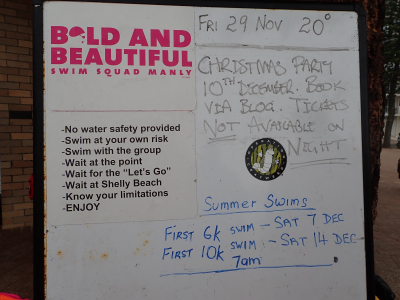 BOLD AND
BEAUTIFUL
SWIM SQUAD MANLY
-No water safety provided
-Swim at your own risk
-Swim with the group
-Wait at the point
-Wait for the "Let's Go"
-Wait at Shelly Beach
-Know your limitations
-ENJOY
FRI 29 NOV 20°
CHRISTMAS PARTY
10TH DECEMBER. BOOK
VIA BLOG. TICKETS
NOT AVAILABLE ON
NIGHT
Summer Swims
FIRST 6K SWIM - SAT 7 DEC
FIRST 10K SWIM - SAT 14 DEC
7am